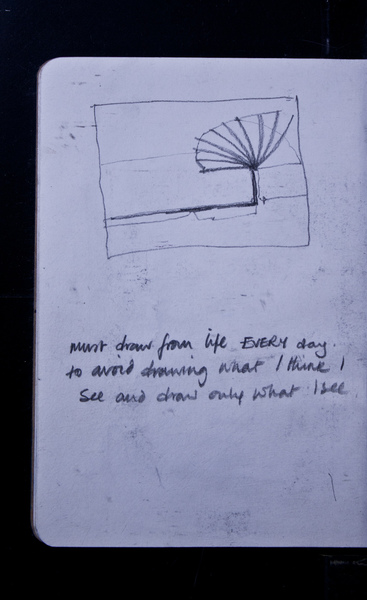 must draw from life EVERY day.
to avoid drawing what I think I
see and draw only what I see